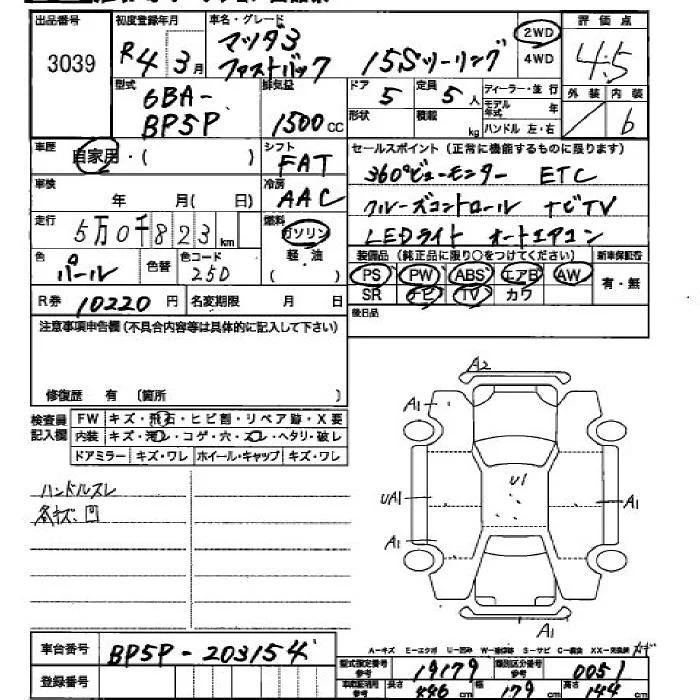 出品番号 3039
初度登録年月 R4 3月
車名・グレード マツダ3 ファストバック 15Sツーリング
2WD
4WD
評価点 4.5
外装 内装 6
型式 6BA-BP5P
排気量 1500cc
ドア 5 定員 5人
形状 積載 kg
ディーラー・並行
モデル年式 年
ハンドル 左・右
車歴 自家用・( )
シフト FAT
車検 年 月( 日)
冷房 AAC
セールスポイント (正常に機能するものに限ります)
360°ビューモニター ETC
クルーズコントロール ナビTV
LEDライト オートエアコン
走行 5万0千823km
燃料 ガソリン 軽・油 ( )
色 パール 色替 色コード 25D
装備品 (純正品に限り○をつけてください)
PS PW ABS エアB AW
SR ナビ TV カワ
新車保証書 有・無
R券 10220円 名変期限 月 日
後日品
注意事項申告欄 (不具合内容等は具体的に記入して下さい)
修復歴 有 (箇所 )
検査員記入欄
FW キズ・飛石・ヒビ割・リペア跡・X要
内装 キズ・汚レ・コゲ・穴・スレ・ヘタリ・破レ
ドアミラー キズ・ワレ ホイール・キャップ キズ・ワレ
ハンドルスレ
各キズ、凹
A2
A1
U1
UA1
A1
A1
A1
A-キズ E-エクボ U-凹み W-補修跡 S-サビ C-腐食 XX-交換済
車台番号 BP5P-203154
登録番号
型式指定番号 参考 19179 類別区分番号 参考 0051
車両証明書 参考 長さ 446cm 幅 179cm 高さ 144cm